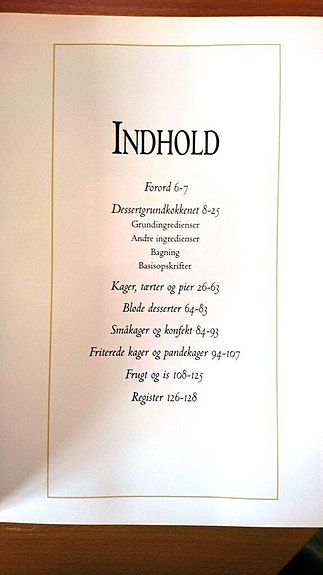 INDHOLD
Forord 6-7
Dessertgrundkøkkenet 8-25
Grundingredienser
Andre ingredienser
Bagning
Basisopskrifter
Kager, tærter og pier 26-63
Bløde desserter 64-83
Småkager og konfekt 84-93
Friterede kager og pandekager 94-107
Frugt og is 108-125
Register 126-128